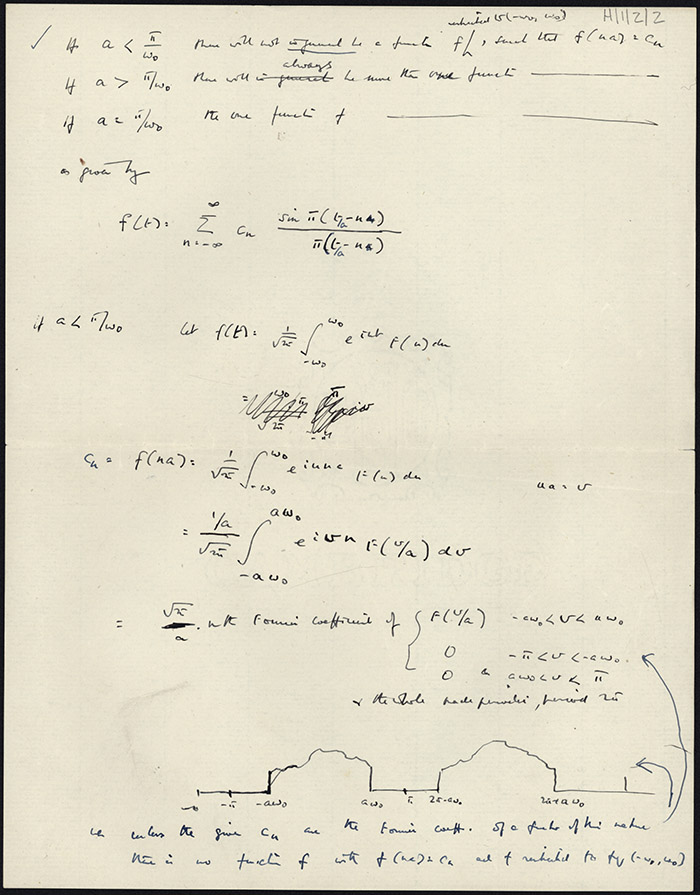 H/1/2/2
restricted to (-ω₀, ω₀)
✓ If a < π/ω₀ there will not in general be a function f, such that f(na) = cₙ
always
If a > π/ω₀ there will in general be more than one function ————
if a = π/ω₀ the one function f ————
is given by
f(t) = ∑_{n=-∞}^{∞} cₙ sin π(t/a - n) / π(t/a - n)
if a < π/ω₀ let f(t) = 1/√2π ∫_{-ω₀}^{ω₀} e^{iut} F(u) du
cₙ = f(na) = 1/√2π ∫_{-ω₀}^{ω₀} e^{iuna} F(u) du ua = v
= (1/a)/√2π ∫_{-aω₀}^{aω₀} e^{ivn} F(v/a) dv
= √2π/a . nth Fourier coefficient of { F(v/a) -aω₀ < v < aω₀
0 -π < v < -aω₀
0 & aω₀ < v < π
& the whole made periodic, period 2π
-π -aω₀ aω₀ π 2π-aω₀ 2π+aω₀
unless the given cₙ are the Fourier coeff. of a function of this nature
there is no function f with f(na) = cₙ and f restricted to (-ω₀, ω₀)